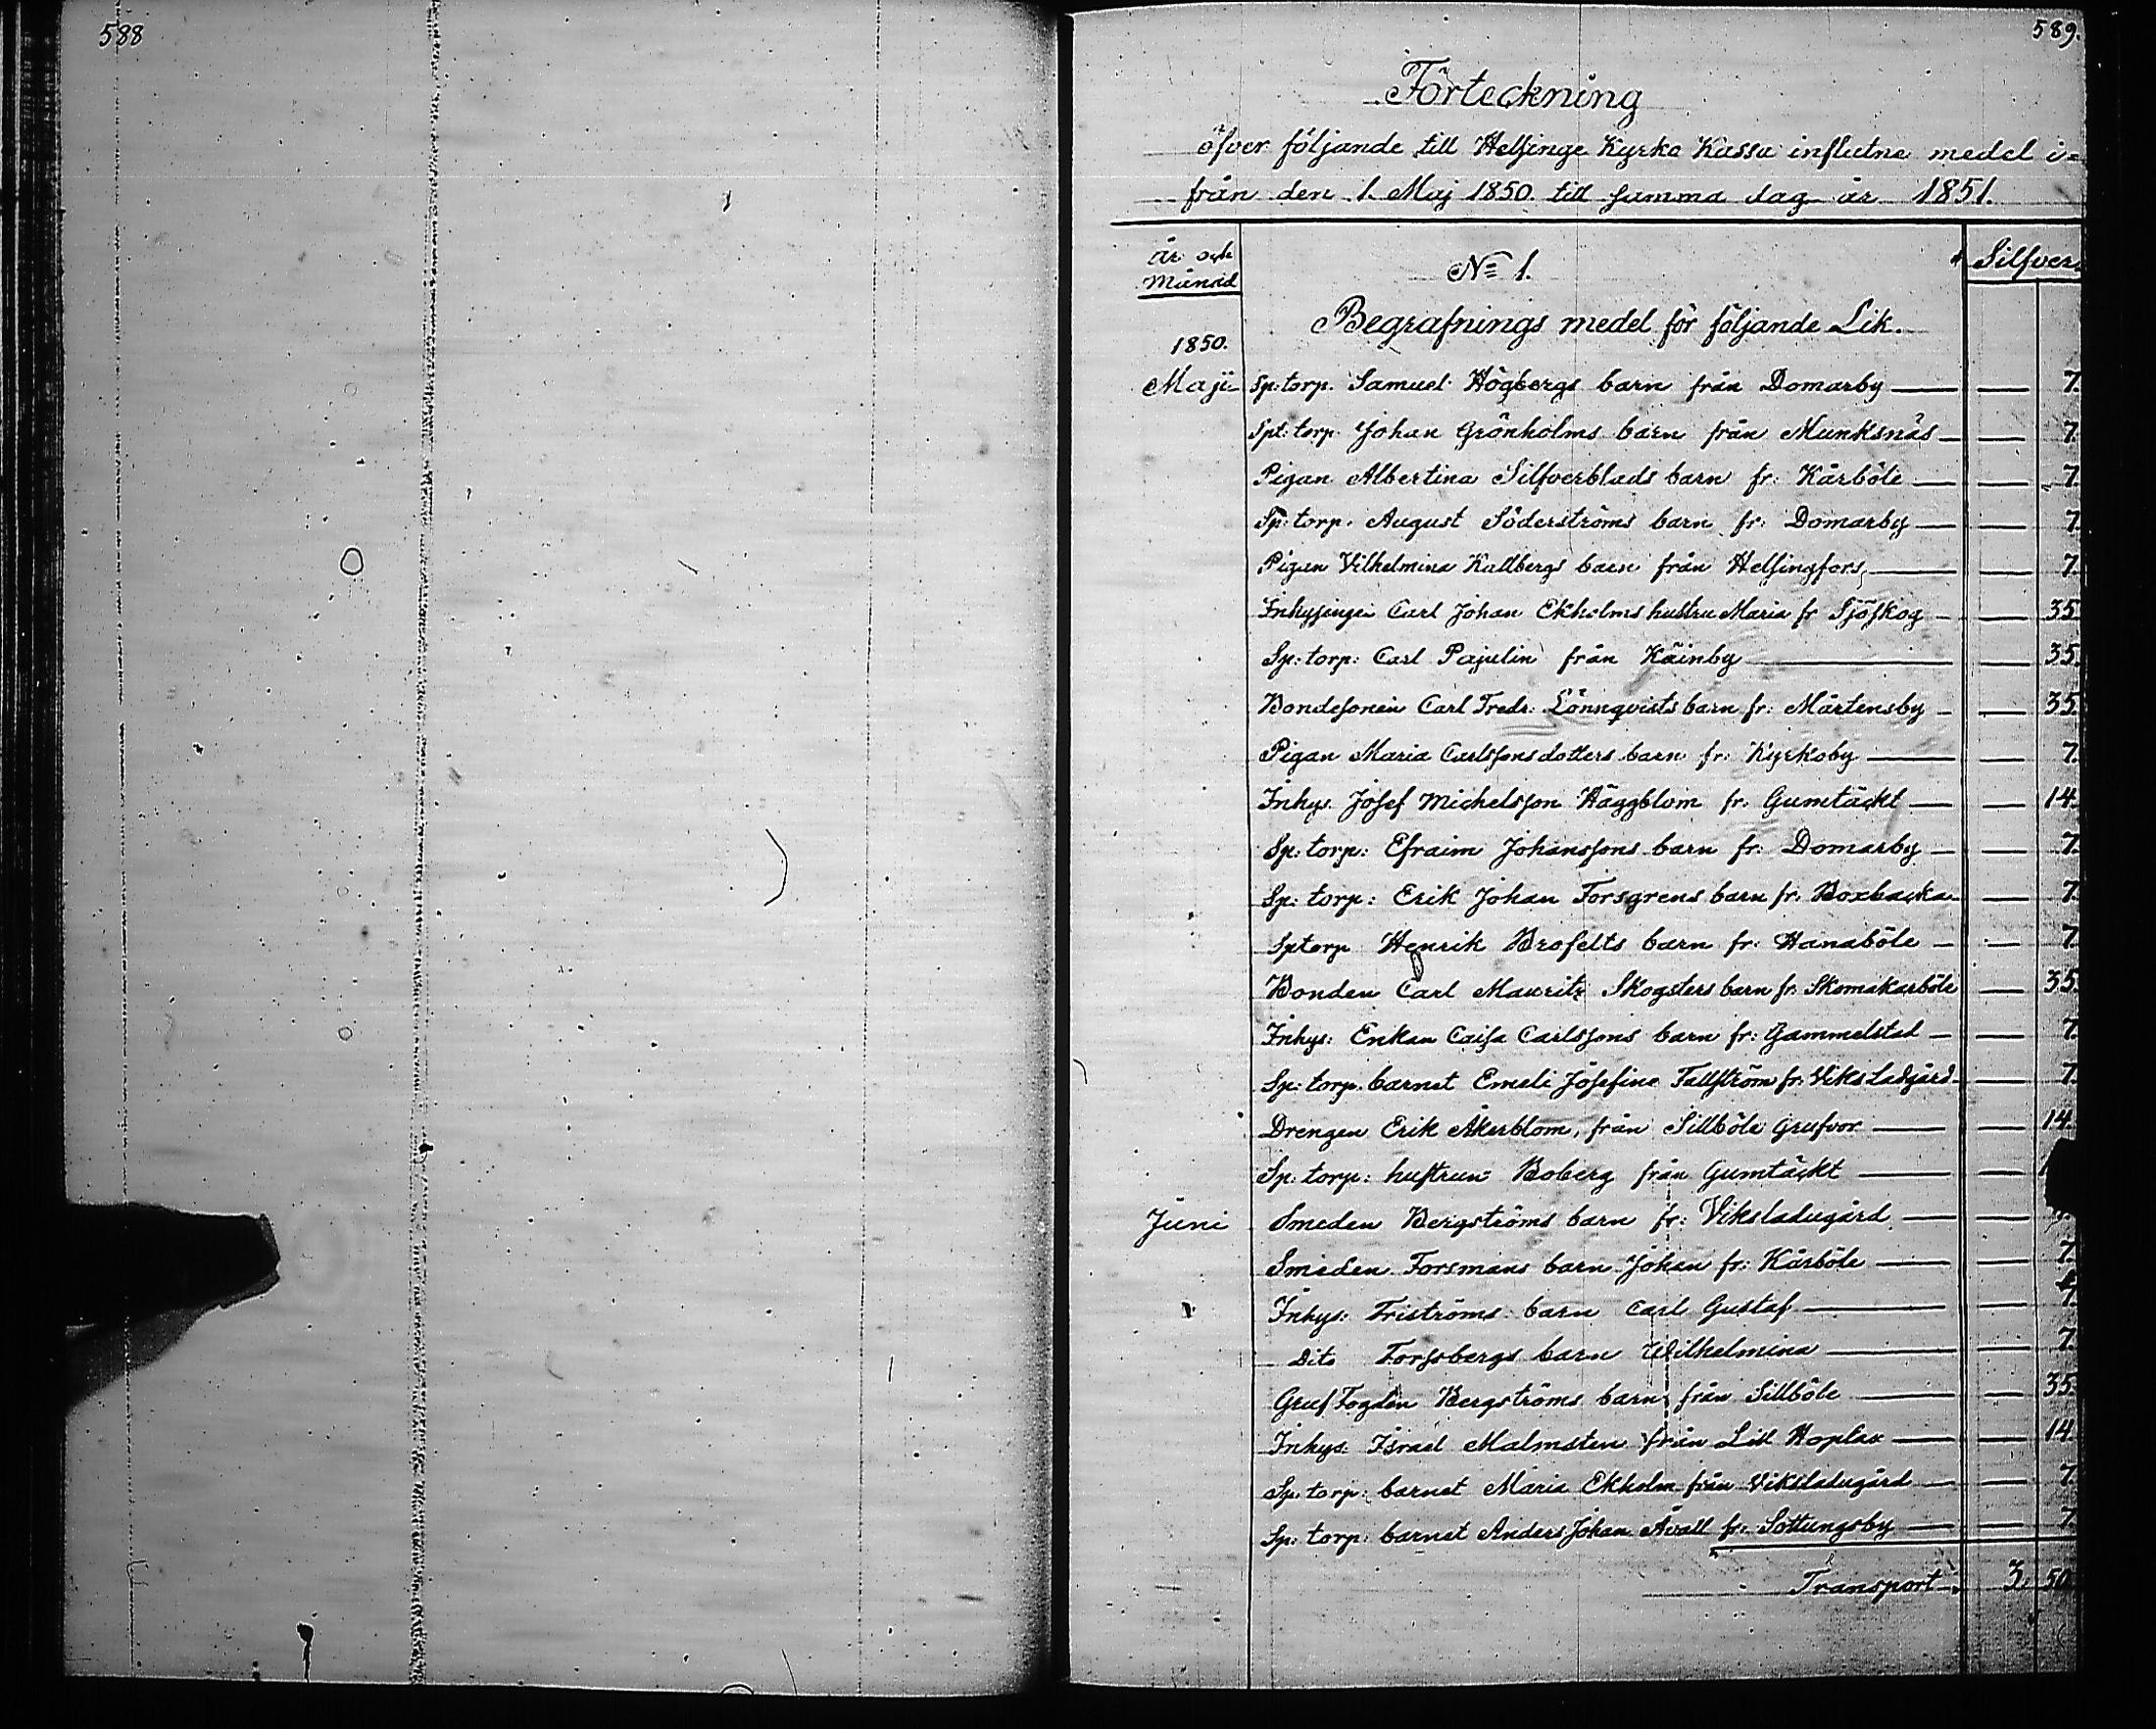 588
589.
Förteckning
öfver följande till Helsinge Kyrko Kassa influtne medel i=
från den 1. Maj 1850. till samma dag år 1851.
år och Månad
No 1.
Silfver.
Begrafnings medel för följande Lik.
1850.
Maji Sp: torp. Samuel Högbergs barn från Domarby — — 7.
Spt: torp. Johan Grönholms barn från Munksnäs — — 7.
Pigan Albertina Silfverblads barn fr: Kårböle — — 7.
Sp: torp. August Söderströms barn fr: Domarby — — 7.
Pigan Vilhelmina Kullbergs barn från Helsingfors — — 7.
Inhysingen Carl Johan Ekholms hustru Maria fr Sjöskog — — 35.
Sp: torp: Carl Pajulin från Käinby — — 35.
Bondesonen Carl Fredr: Lönnqvists barn fr: Mårtensby — — 35.
Pigan Maria Carlssonsdotters barn fr: Kyrkoby — — 7.
Inhys. Josef Michelsson Häggblom fr: Gumtäckt — — 14.
Sp: torp: Efraim Johanssons barn fr: Domarby — — 7.
Sp: torp: Erik Johan Forsgrens barn fr. Boxbacka — — 7.
Sptorp Henrik Brofelts barn fr: Hanaböle — — 7.
Bonden Carl Mauritz Skogsters barn fr. Skomakarböle — 35.
Inhys: Enkan Caisa Carlssons barn fr: Gammelstad — — 7.
Sp: torp. barnet Emeli Josefina Tallström fr: Viks Ladgård — — 7.
Drengen Erik Åkerblom, från Sillböle Grufvor — — 14.
Sp: torp: hustrun Boberg från Gumtäckt — —
Juni Smeden Bergströms barn fr: Viksladugård — —
Smeden Forsmans barn Johan fr: Kårböle — — 7.
Inhys: Friströms barn Carl Gustaf — — 7.
Dito Forssbergs barn Wilhelmina — — 7.
Gruf Fogden Bergströms barn från Sillböle — — 35.
Inhys. Israel Malmsten från Lill Hoplax — — 14.
Sp: torp: barnet Maria Ekholm från Viksladugård — — 7.
Sp: torp: barnet Anders Johan Åvall fr: Sottungsby — — 7.
Transport 3. 50.